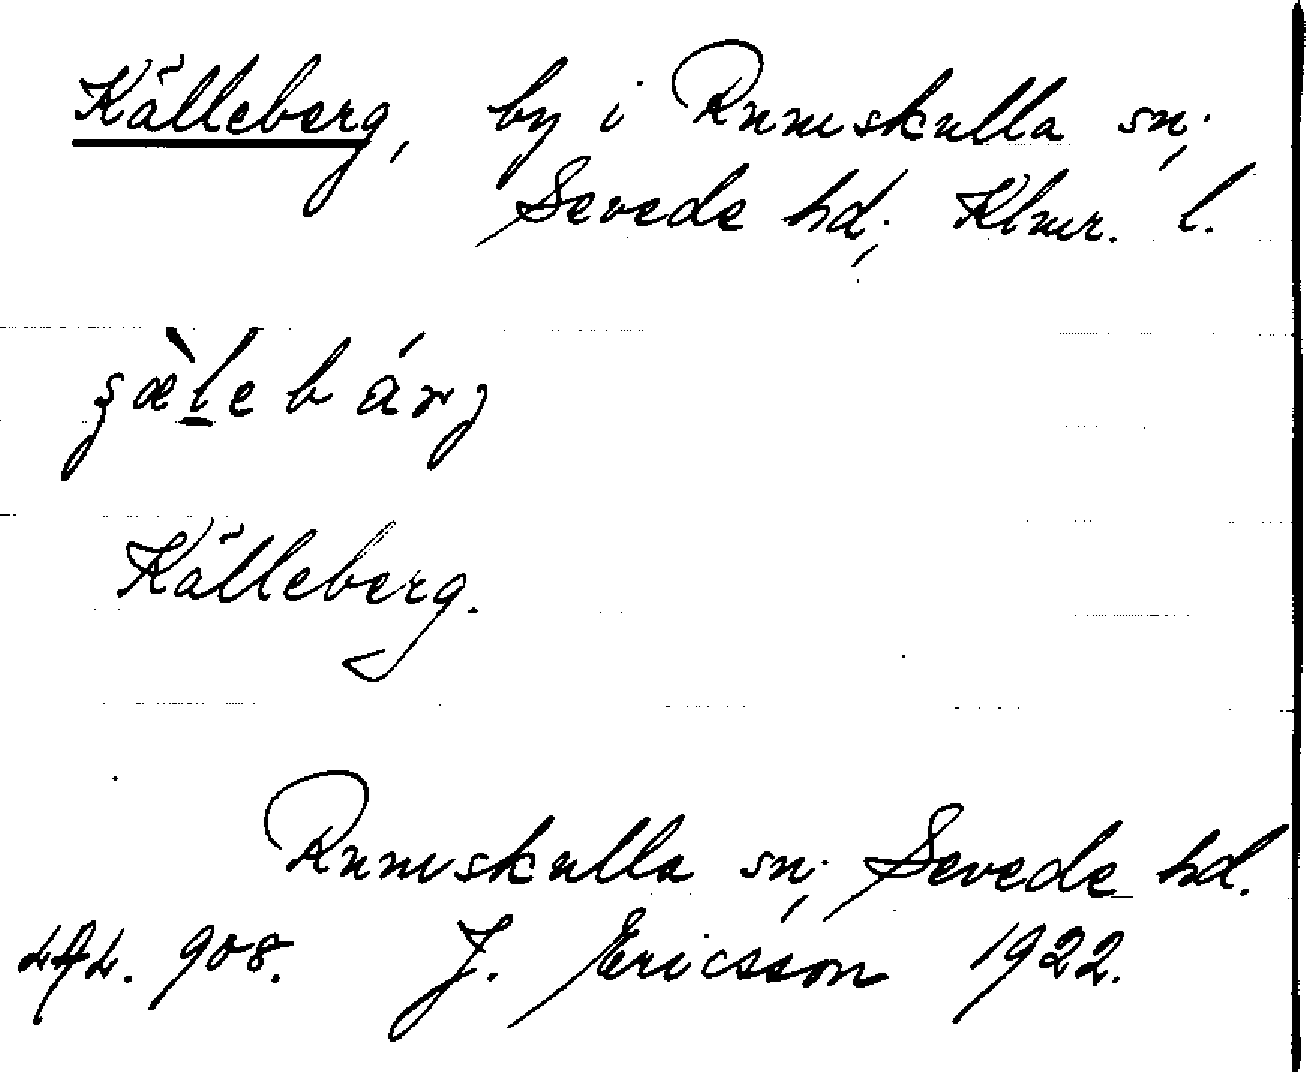 Källeberg, by i Rumskulla sn.,
Sevede hd., Klmr. l.
Källeberg.
Rumskulla sn., Sevede hd.
908. J. Ericsson 1922.